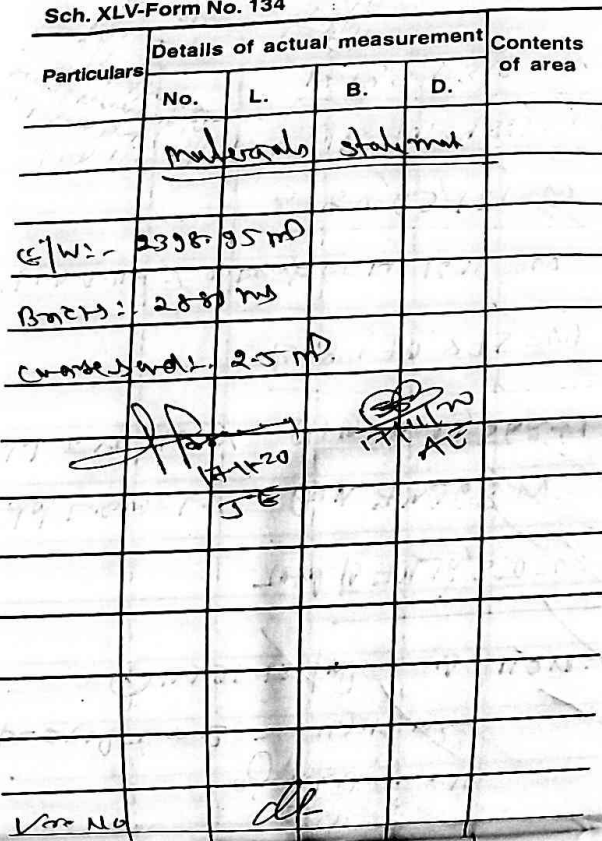 Sch. XLV-Form No. 134
Particulars
Details of actual measurement
Contents of area
No. L. B. D.
materials statement
E/W:- 2398.95 m3
Bricks:- 2880 nos
coarse sand:- 2.5 m3.
17-11-20
JE
17/11/20
AE